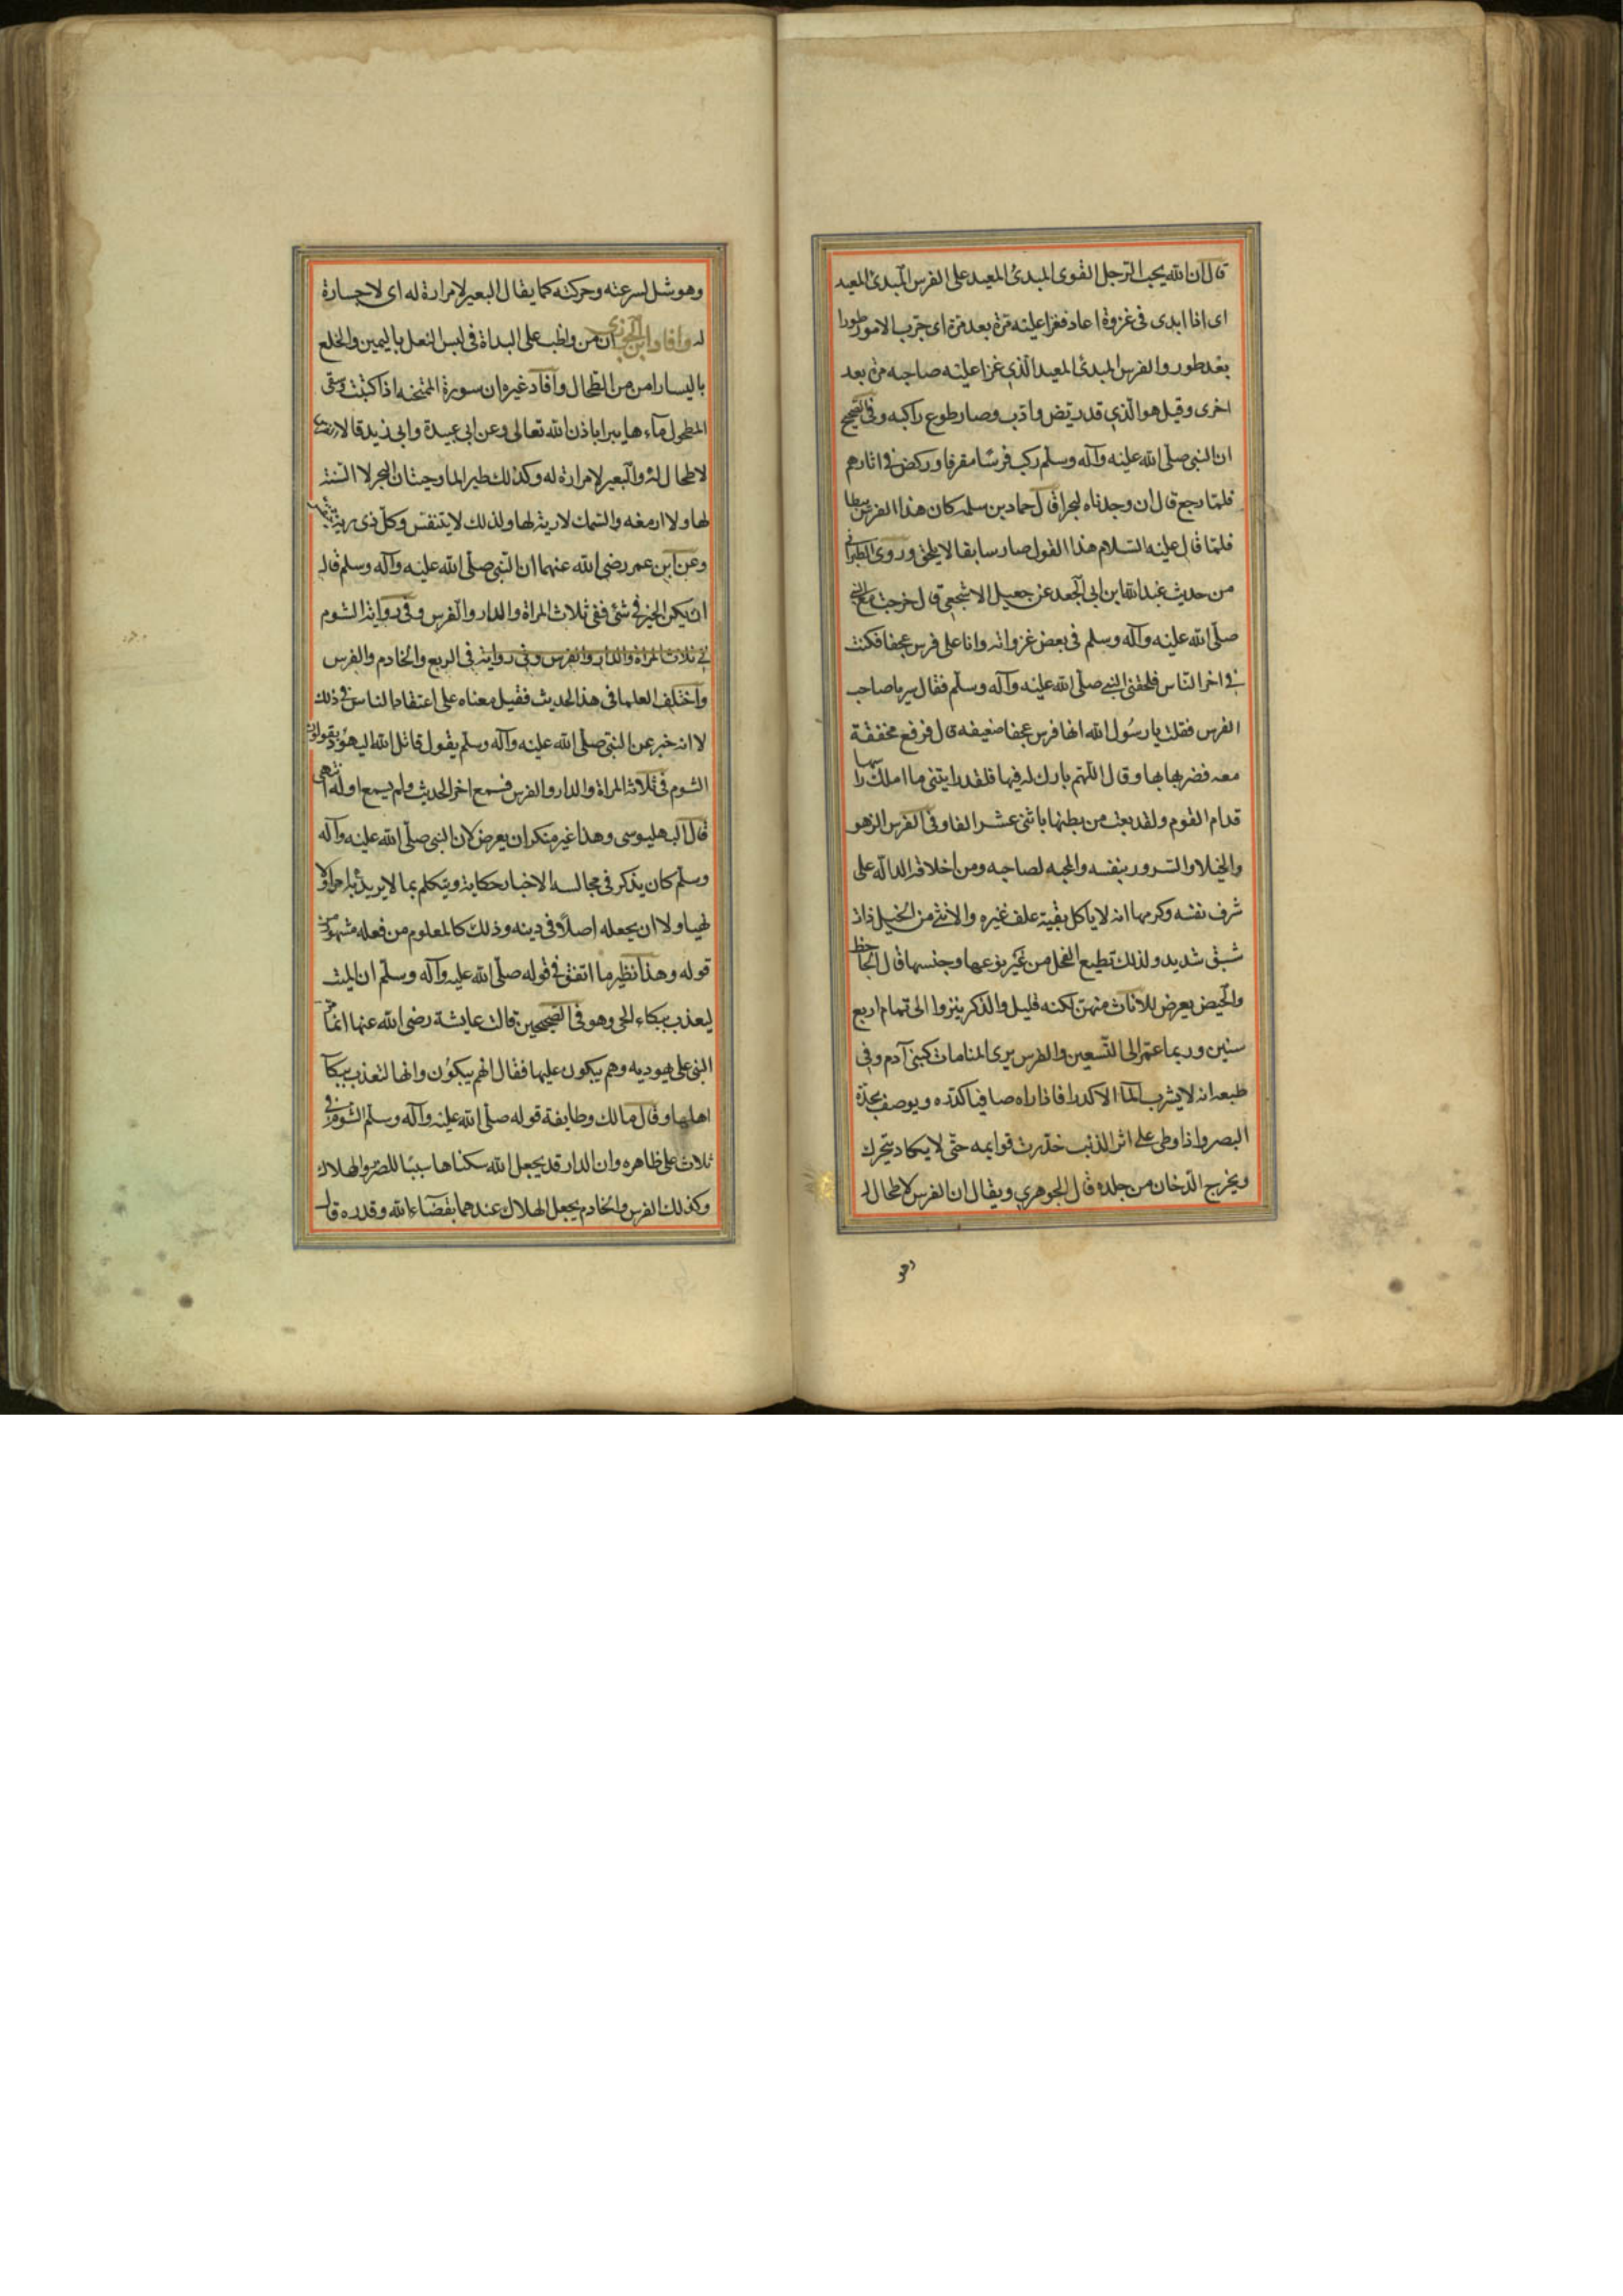 قال ان الله يحب الرجل القوى المبدئ المعيد على الفرس المبدئ المعيد
اى اذا ابدى فى غزوة اعاد فغزا عليه مرة بعد مرة اى جرب الامور طورا
بعد طور والفرس المبدئ المعيد الذى غزا عليه صاحبه مرة بعد
اخرى وقيل هو الذى قد ريض وادب وصار طوع راكبه وفى الصحيح
ان النبى صلى الله عليه وآله وسلم ركب فرسا مقرفا وركض فى اثارهم
فلما رجع قال ان وجدناه لبحرا قال حماد بن سلمه كان هذا الفرس بطا
فلما قال عليه السلام هذا القول صار سابقا لا يلحق وروى الطبرانى
من حديث عبد الله ابن ابى الجعد عن جعيل الاشجعى قال خرجت مع النبى
صلى الله عليه وآله وسلم فى بعض غزواته وانا على فرس عجفا فكنت
فى اخر الناس فلحقنى النبى صلى الله عليه وآله وسلم فقال سر يا صاحب
الفرس فقلت يا رسول الله انها فرس عجفا ضعيفه قال فرفع مخفقة
معه فضربها بها وقال اللهم بارك له فيها فلقد رايتنى ما املك راسها
قدام القوم ولقد بعت من بطنها باثنى عشر الفا وفى الفرس الزهو
والخيلا والسرور بنفسه والمحبه لصاحبه ومن اخلاقه الداله على
شرف نفسه وكرمها انه لا ياكل بقية علف غيره والانثى من الخيل ذات
شبق شديد ولذلك تطيع الفحل من غير نوعها وجنسها قال الجاحظ
والحيض يعرض للاناث منهن لكنه قليل والذكر ينزوا الى تمام اربع
سنين وربما عمر الى التسعين والفرس يرى المنامات كبنى آدم وفى
طبعه انه لا يشرب الما الا كدرا فاذا راه صافيا كدره ويوصف بحدة
البصر واذا وطى على اثر الذئب خدرت قوايمه حتى لا يكاد يتحرك
ويخرج الدخان من جلده قال الجوهرى ويقال ان الفرس لا طحال له
وهو
وهو مثل لسرعته وحركته كما يقال البعير لا مرارة له اى لا جسارة
له وافاد ابن الجوزى ان من واظب على البداة فى لبس النعل باليمين والخلع
باليسار امن من الطحال وافاد غيره ان سورة الممتحنه اذا كتبت وسقى
المطحول مآءها يبرا باذن الله تعالى وعن ابى عبيدة وابى زيد قالا الفرس
لا طحال له والبعير لا مرارة له وكذلك طير الما وحيتان البحر لا السنة
لها ولا ادمغه والسمك لا رية لها ولذلك لا يتنفس وكل ذى رية يتنفس
وعن ابن عمر رضى الله عنهما ان النبى صلى الله عليه وآله وسلم قال
ان يكن الخير فى شئ ففى ثلاث المراة والدار والفرس وفى رواية الشوم
فى ثلاث المراة والدار والفرس وفى رواية فى الربع والخادم والفرس
واختلف العلما فى هذا الحديث فقيل معناه على اعتقاد الناس فى ذلك
لا انه خبر عن النبى صلى الله عليه وآله وسلم يقول قاتل الله اليهود يقولون
الشوم فى ثلاث المراة والدار والفرس فسمع اخر الحديث ولم يسمع اوله انتهى
قال البهليوسى وهذا غير منكر ان يعرض لان النبى صلى الله عليه وآله
وسلم كان يذكر فى مجالسه الاخبار حكاية ويتكلم بما لا يريد به امرا ولا
نهيا ولا ان يجعله اصلا فى دينه وذلك كالمعلوم من فعله مشهور من
قوله وهذا نظير ما اتفق فى قوله صلى الله عليه وآله وسلم ان الميت
ليعذب ببكاء الحى وهو فى الصحيحين قالت عايشة رضى الله عنها انما مر
النبى على يهوديه وهم يبكون عليها فقال انهم يبكون وانها لتعذب ببكآ
اهلها وقال مالك وطايفة قوله صلى الله عليه وآله وسلم الشوم فى
ثلاث على ظاهره وان الدار قد يجعل الله سكناها سببا للضر والهلاك
وكذلك الفرس والخادم يجعل الهلاك عندهما بقضآء الله وقدره قال